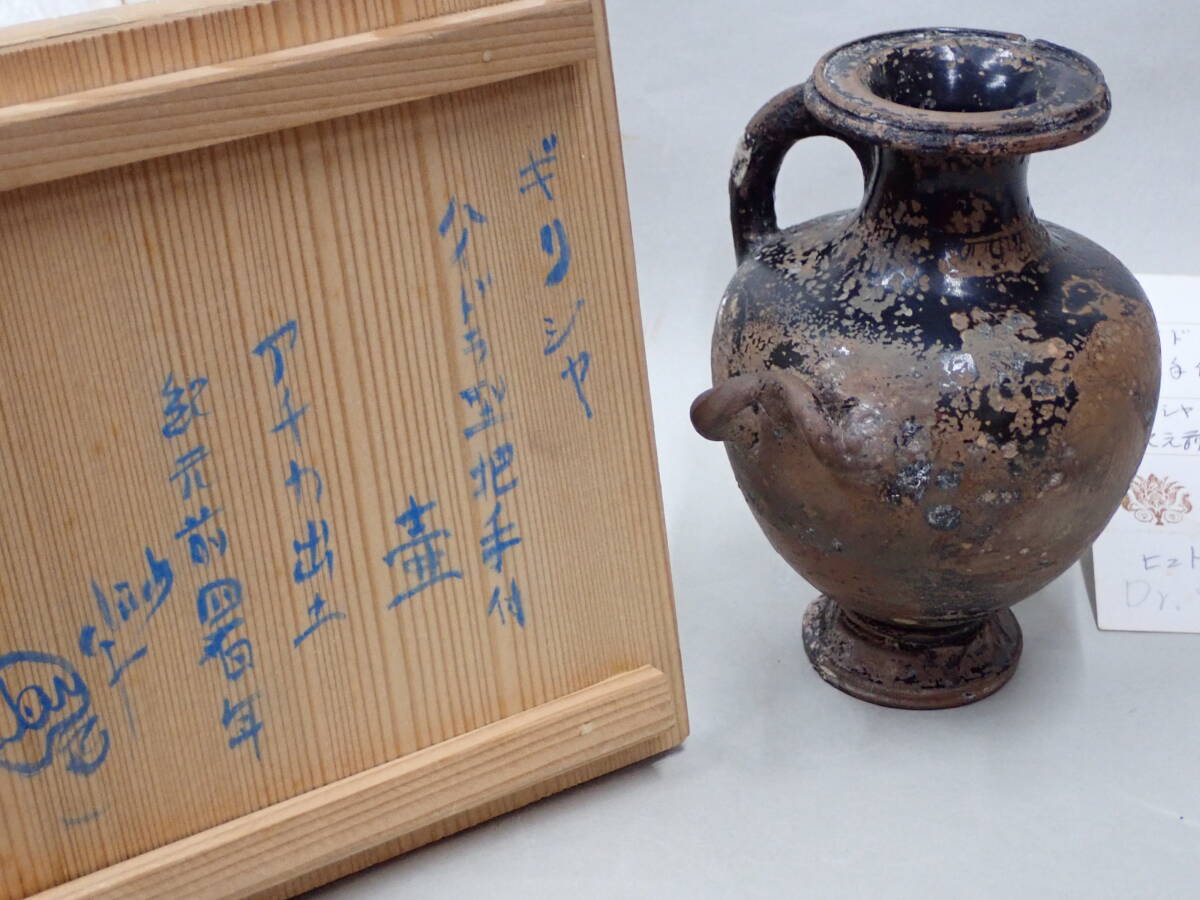 ギリシヤ
ハイドラ型把手付
壷
アチカ出土
紀元前四百年
ド
シャ
元前
ヒエト
Dr.